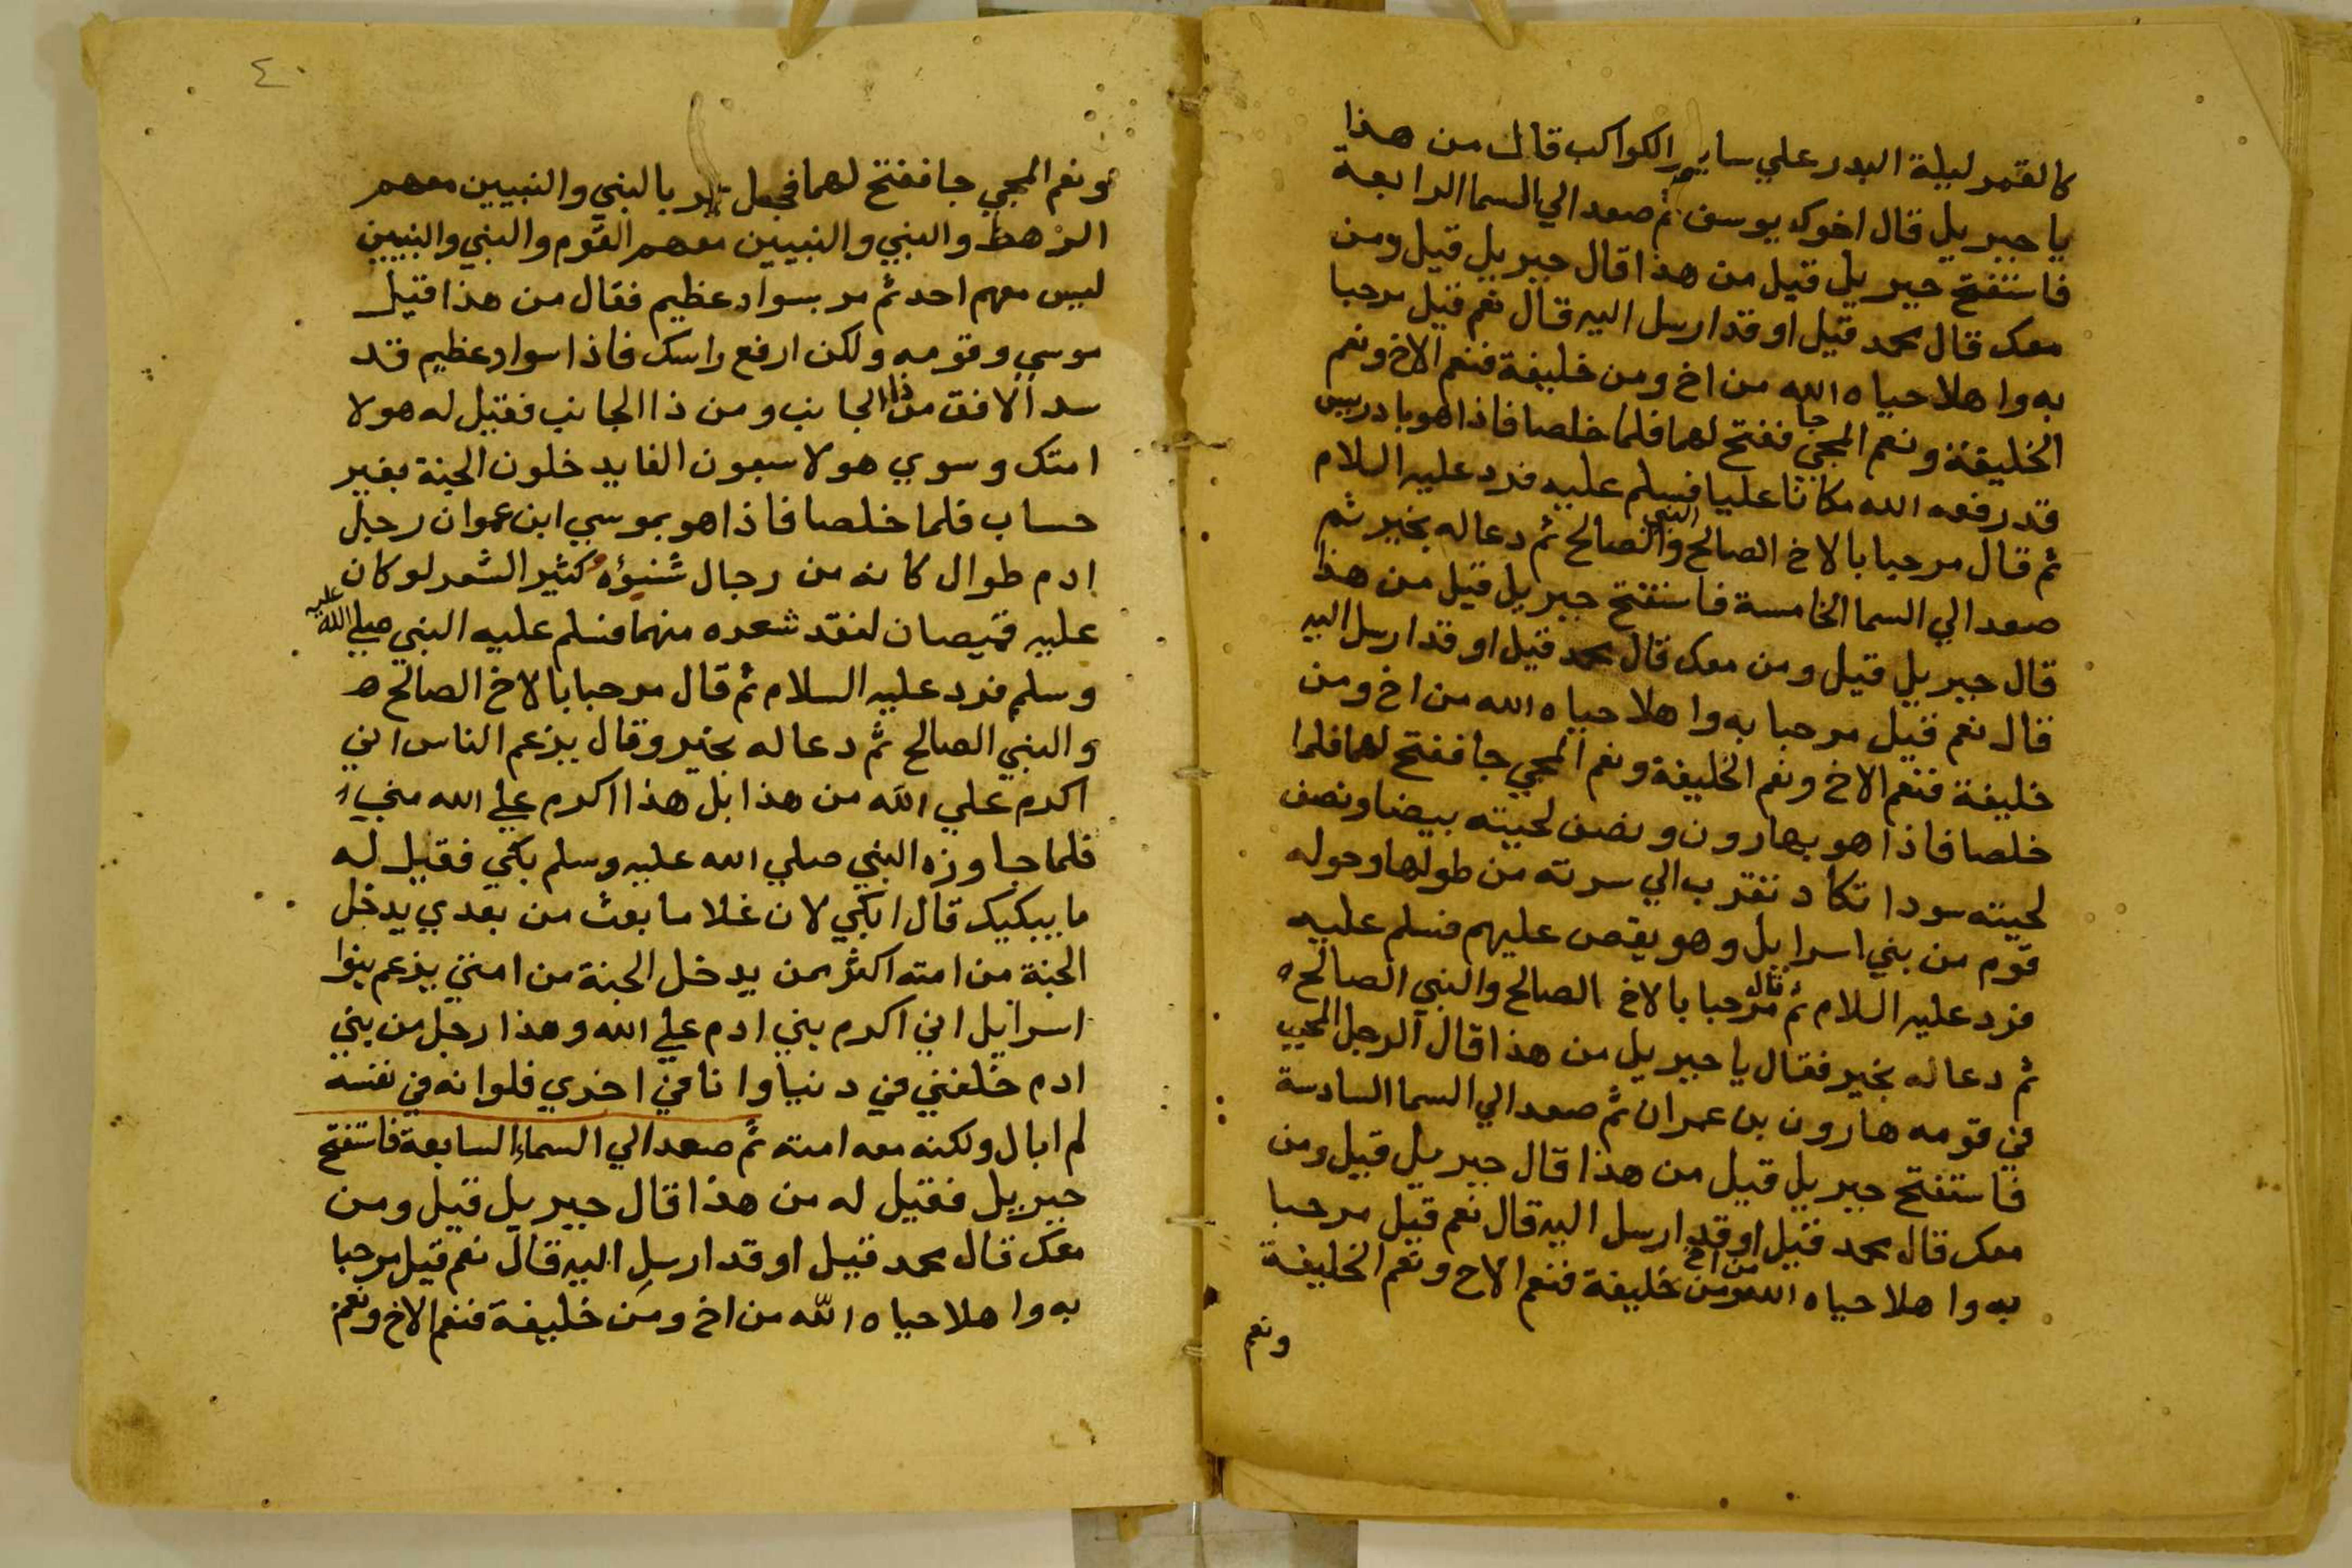 كالقمر ليلة البدر علي ساير الكواكب قال من هذا
يا جبريل قال اخوك يوسف ثم صعد الي السما الرابعة
فاستفتح جبريل قيل من هذا قال جبريل قيل ومن
معك قال محمد قيل او قد ارسل اليه قال نعم قيل مرحبا
به واهلا حياه الله من اخ ومن خليفة فنعم الاخ ونعم
الخليفة ونعم المجي جا ففتح لهما فلما خلصا فاذا هو بادريس
قد رفعه الله مكانا عليا فسلم عليه فرد عليه السلام
ثم قال مرحبا بالاخ الصالح والنبي الصالح ثم دعا له بخير ثم
صعد الي السما الخامسة فاستفتح جبريل قيل من هذا
قال جبريل قيل ومن معك قال محمد قيل او قد ارسل اليه
قال نعم قيل مرحبا به واهلا حياه الله من اخ ومن
خليفة فنعم الاخ ونعم الخليفة ونعم المجي جا ففتح لهما فلما
خلصا فاذا هو بهارون ونصف لحيته بيضا ونصف
لحيته سودا تكاد تقرب الي سرته من طولها وحوله
قوم من بني اسرايل وهو يقص عليهم فسلم عليه
فرد عليه السلام ثم قال مرحبا بالاخ الصالح والنبي الصالح
ثم دعا له بخير فقال يا جبريل من هذا قال الرجل المحبب
في قومه هارون بن عمران ثم صعد الي السما السادسة
فاستفتح جبريل قيل من هذا قال جبريل قيل ومن
معك قال محمد قيل او قد ارسل اليه قال نعم قيل مرحبا
به واهلا حياه الله من اخ ومن خليفة فنعم الاخ ونعم الخليفة
ونعم
٤٠
ونعم المجي جا ففتح لهما فجعل يمر بالنبي والنبيين معهم
الرهط والنبي والنبيين معهم القوم والنبي والنبيين
ليس معهم احد ثم مر بسواد عظيم فقال من هذا قيل
موسي وقومه ولكن ارفع راسك فاذا سواد عظيم قد
سد الافق من ذا الجانب ومن ذا الجانب فقيل له هولا
امتك وسوي هولا سبعون الفا يدخلون الجنة بغير
حساب فلما خلصا فاذا هو بموسي ابن عمران رجل
ادم طوال كانه من رجال شنوؤه كثير الشعر لو كان
عليه قميصان لنفد شعره منهما فسلم عليه النبي صلي الله عليه
وسلم فرد عليه السلام ثم قال مرحبا بالاخ الصالح
والنبي الصالح ثم دعا له بخير وقال يزعم الناس اني
اكرم علي الله من هذا بل هذا اكرم علي الله مني
فلما جاوزه النبي صلي الله عليه وسلم بكي فقيل له
ما يبكيك قال ابكي لان غلاما بعث من بعدي يدخل
الجنة من امته اكثر ممن يدخل الجنة من امتي يزعم بنوا
اسرايل اني اكرم بني ادم علي الله وهذا رجل من بني
ادم خلفني في دنيا وانا في اخري فلو انه في نفسه
لم ابال ولكنه معه امته ثم صعد الي السماء السابعة فاستفتح
جبريل فقيل له من هذا قال جبريل قيل ومن
معك قال محمد قيل او قد ارسل اليه قال نعم قيل مرحبا
به واهلا حياه الله من اخ ومن خليفة فنعم الاخ ونعم